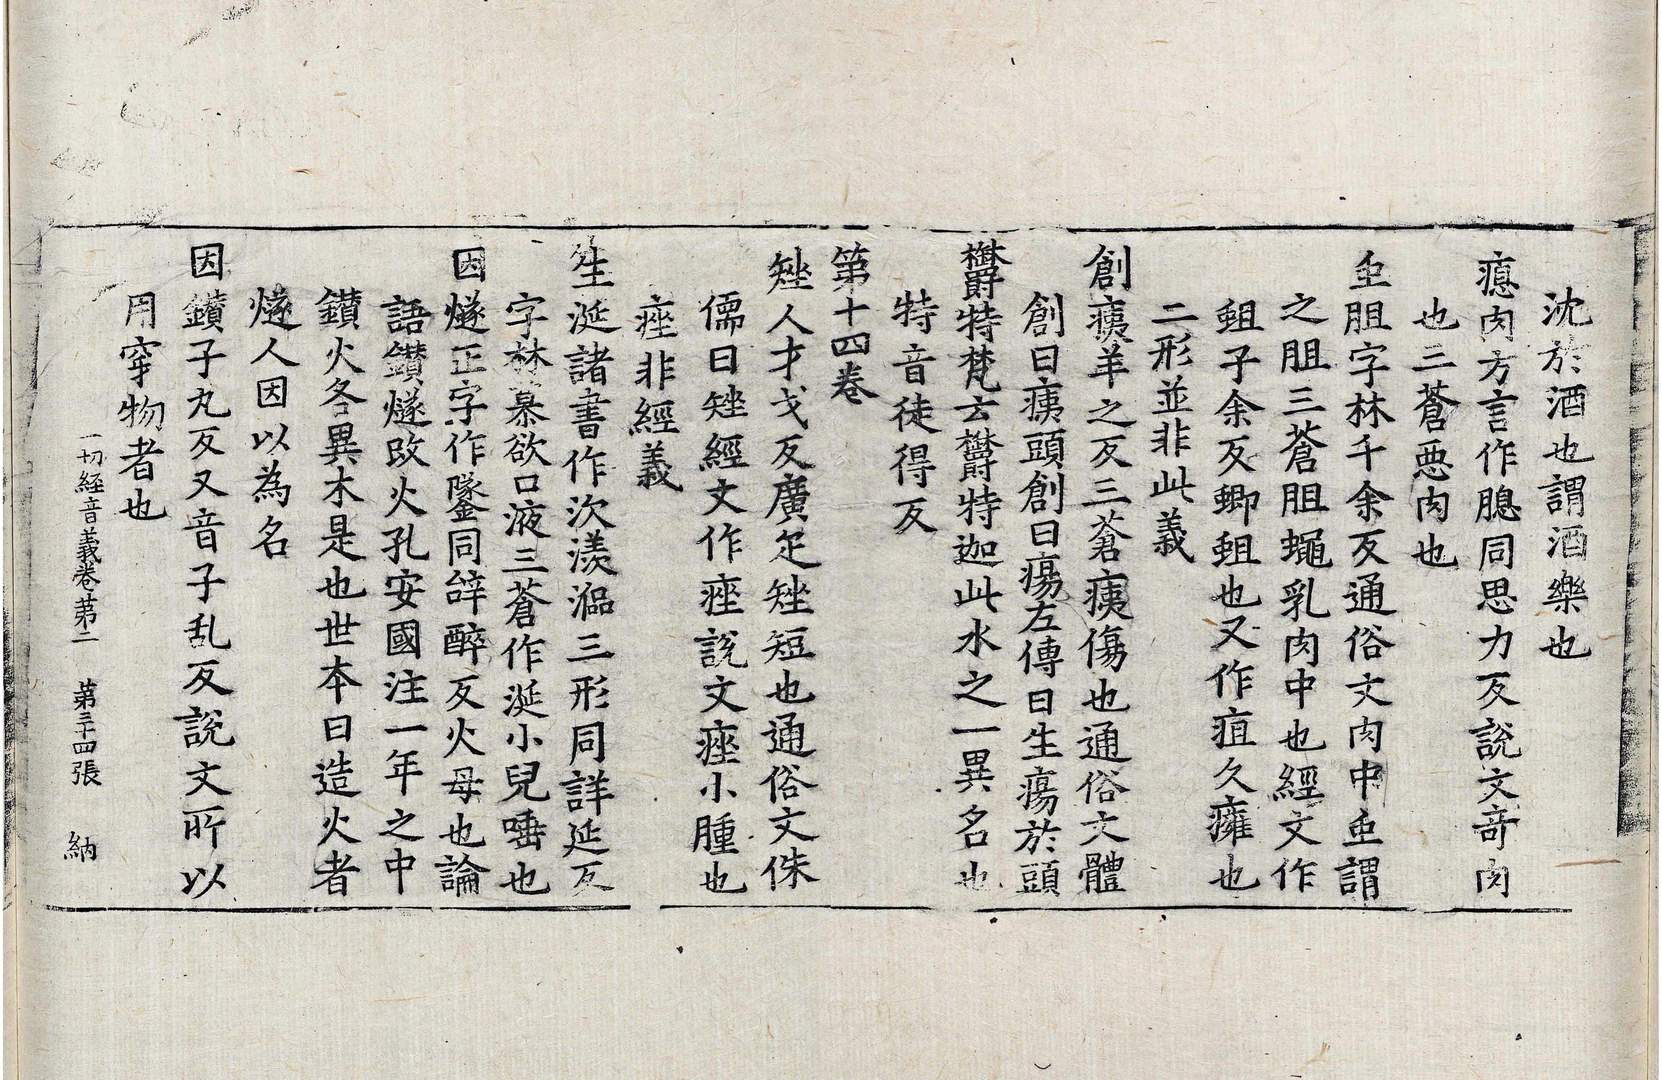 沈於酒也謂酒樂也
瘜肉方言作膒同思力反說文奇肉
也三蒼惡肉也
䖝胆字林千余反通俗文肉中䖝謂
之胆三蒼胆蠅乳肉中也經文作
蛆子余反蝍蛆也又作疽久癰也
二形並非此義
創痍羊之反三蒼痍傷也通俗文體
創曰痍頭創曰瘍左傳曰生瘍於頭
欝特梵云欝特迦此水之一異名也
特音徒得反
第十四卷
矬人才戈反廣疋矬短也通俗文侏
儒曰矬經文作痤說文痤小腫也
痤非經義
生涎諸書作次㵪㳄三形同詳延反
字林慕欲口液三蒼作涎小兒唾也
因燧正字作䥙同辝醉反火母也論
語鑚燧改火孔安國注一年之中
鑚火各異木是也世本曰造火者
燧人因以為名
因鑚子丸反又音子乱反說文所以
用穿物者也
一切經音義卷第二　第三十四張　納